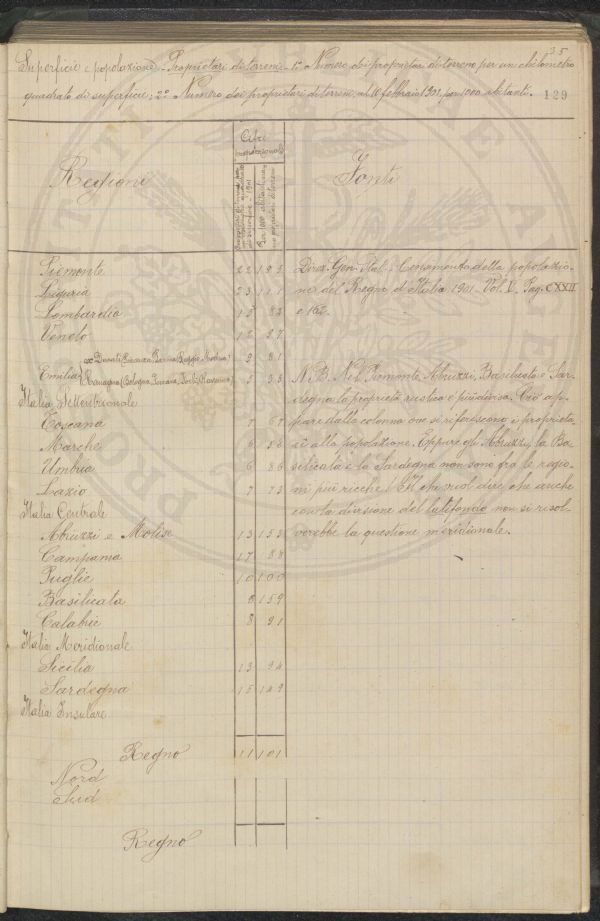 35
Superficie e popolazione - Proprietari di terreni - 1º Numero dei proprietari di terreno per un chilometro
quadrato di superficie; 2º Numero dei proprietari di terreni, al 10 febbraio 1901, per 1000 abitanti. 129
Cifre
proporzionali
Regioni
Fonti
Per 1000 abitanti
Piemonte 22 193 Direz. Gen. Stat: Censimento della popolazio-
Liguria 23 ne del Regno d'Italia 1901. Vol. V. Pag. CXXII
Lombardia 13 82
Veneto 12 27
ex Ducati (Piacenza, Parma, Reggio, Modena) 9 81
Emilia Romagna (Bologna, Ferrara, Forlì, Ravenna) 5 38 N.B. Nel Piemonte, Abruzzi, Basilicata e Sar-
degna la proprietà rustica è più divisa. Ciò ap-
Italia Settentrionale
Toscana 7 67 pare dalla colonna ove si riferiscono i proprieta-
Marche 6 ri alla popolazione. Eppure gli Abruzzi, la Ba-
Umbria 6 86 silicata e la Sardegna non sono fra le regio-
Lazio 7 73 ni più ricche! Il che vuol dire, che anche
Italia Centrale con la divisione del latifondo non si risol-
Abruzzi e Molise 13 153 verebbe la questione meridionale.
Campania 17 88
Puglie 10 100
Basilicata 8 159
Calabrie 8 91
Italia Meridionale
Sicilia 13 94
Sardegna 15 149
Italia Insulare
Regno 11 101
Nord
Sud
Regno